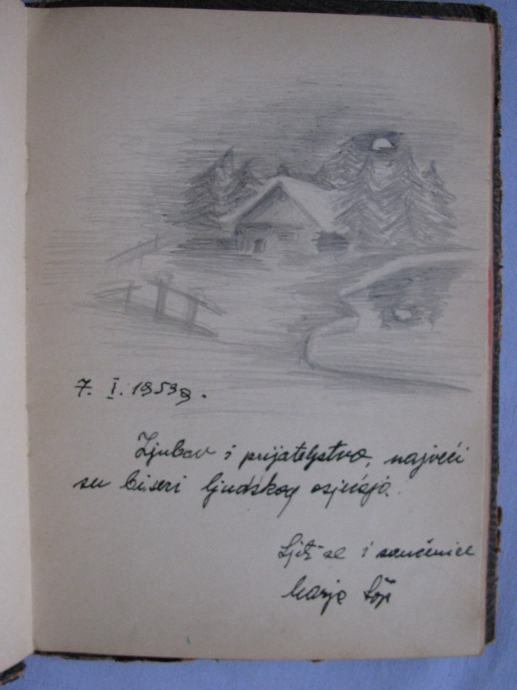 7. I. 1953g.
Ljubav i prijateljstvo, najveći
su biseri ljudskog osjećaja.
se i
Marija